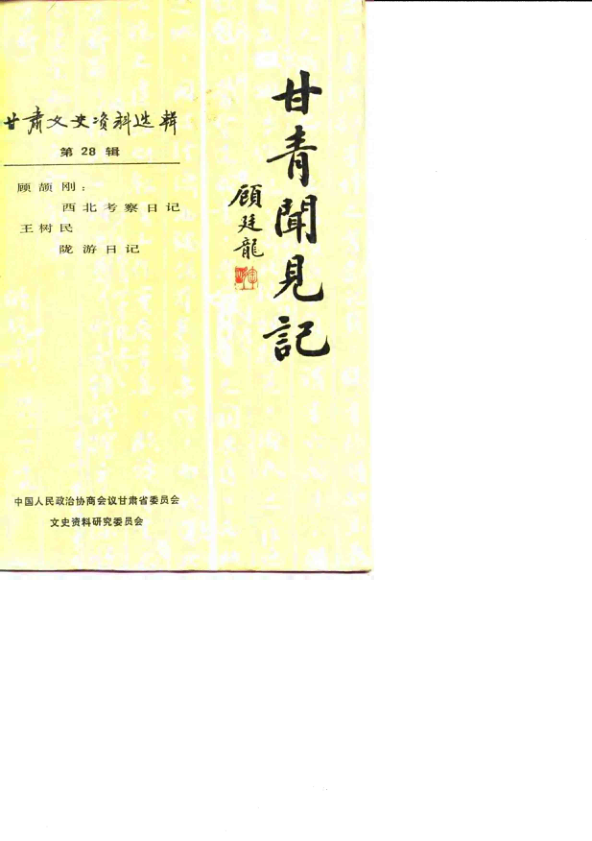 甘肃文史资料选辑
第28辑
顾颉刚:
西北考察日记
王树民
陇游日记
甘青聞見記
顧廷龍
中国人民政治协商会议甘肃省委员会
文史资料研究委员会